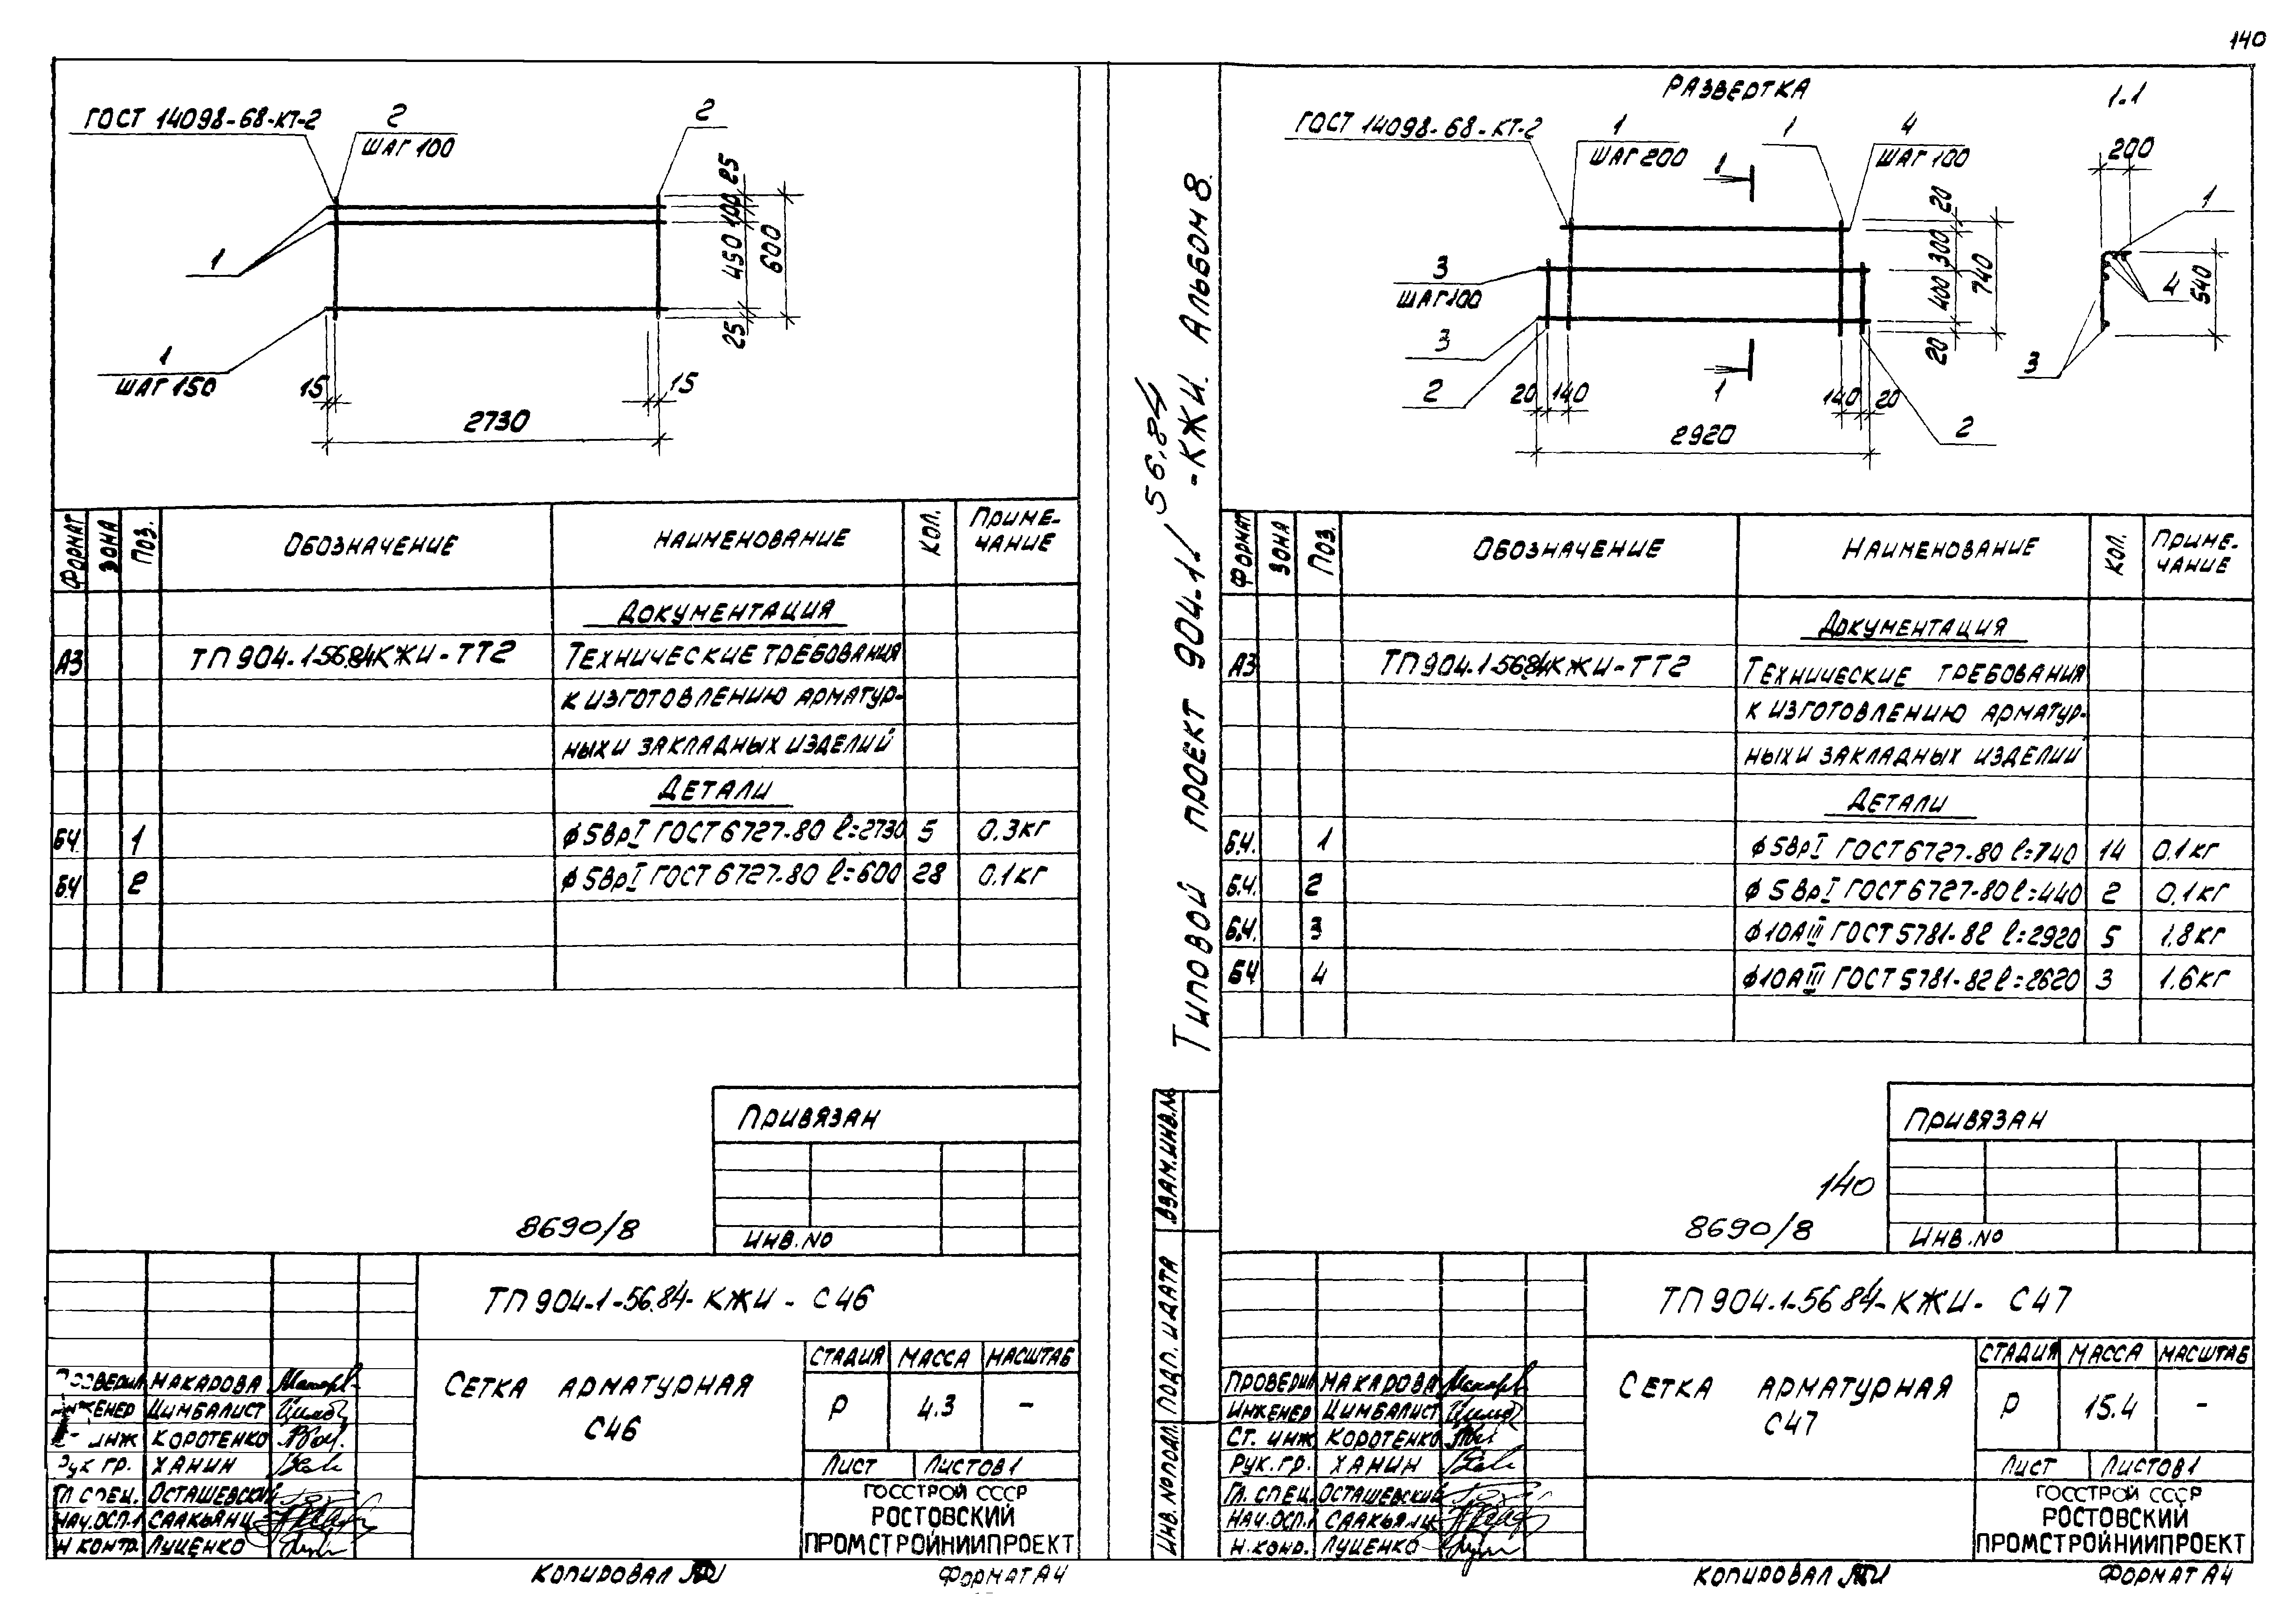 140
ГОСТ 14098-68-КТ-2
2
ШАГ 100
2
25
100
450
600
25
1
1
ШАГ 150
15
15
2730
ФОРМАТ
ЗОНА
ПОЗ.
ОБОЗНАЧЕНИЕ
НАИМЕНОВАНИЕ
КОЛ.
ПРИМЕ-
ЧАНИЕ
ДОКУМЕНТАЦИЯ
А3 ТП 904-1-56.84 КЖИ-ТТ2 ТЕХНИЧЕСКИЕ ТРЕБОВАНИЯ
К ИЗГОТОВЛЕНИЮ АРМАТУР-
НЫХ И ЗАКЛАДНЫХ ИЗДЕЛИЙ
ДЕТАЛИ
БЧ. 1 ф5ВрI ГОСТ 6727-80 ℓ=2730 5 0.3кг
БЧ 2 ф5ВрI ГОСТ 6727-80 ℓ=600 28 0.1кг
ПРИВЯЗАН
ИНВ.NO
8690/8
ТП 904-1-56.84-КЖИ-С46
ПРОВЕРИЛ МАКАРОВА
ИНЖЕНЕР ЦИМБАЛИСТ
ИНЖ КОРОТЕНКО
РУК ГР. ХАНИН
ГЛ СПЕЦ. ОСТАШЕВСКИЙ
НАЧ.ОСП.1 СААКЬЯНЦ
Н КОНТР. ЛУЦЕНКО
СЕТКА АРМАТУРНАЯ
С46
СТАДИЯ МАССА МАСШТАБ
Р 4.3 –
ЛИСТ ЛИСТОВ 1
ГОССТРОЙ СССР
РОСТОВСКИЙ
ПРОМСТРОЙНИИПРОЕКТ
КОПИРОВАЛ
ФОРМАТ А4
ТИПОВОЙ ПРОЕКТ 904-1-56.84-КЖИ. АЛЬБОМ 8.
ВЗАМ.ИНВ.№
ПОДП. И ДАТА
ИНВ. №ПОДЛ.
РАЗВЕРТКА
1-1
ГОСТ 14098-68-КТ-2
1
ШАГ 200
1
1
4
ШАГ 100
20
300
400
740
20
3
ШАГ 100
3
2
20 140
1
140 20
2
2920
200
1
4
540
3
ФОРМАТ
ЗОНА
ПОЗ.
ОБОЗНАЧЕНИЕ
НАИМЕНОВАНИЕ
КОЛ.
ПРИМЕ-
ЧАНИЕ
ДОКУМЕНТАЦИЯ
А3 ТП 904.1-56.84 КЖИ-ТТ2 ТЕХНИЧЕСКИЕ ТРЕБОВАНИЯ
К ИЗГОТОВЛЕНИЮ АРМАТУР-
НЫХ И ЗАКЛАДНЫХ ИЗДЕЛИЙ
ДЕТАЛИ
Б.Ч. 1 ф5ВрI ГОСТ 6727-80 ℓ=740 14 0.1кг
Б.Ч. 2 ф5ВрI ГОСТ 6727-80 ℓ=440 2 0.1кг
Б.Ч. 3 ф10АIII ГОСТ 5781-82 ℓ=2920 5 1.8кг
БЧ 4 ф10АIII ГОСТ 5781-82 ℓ=2620 3 1.6кг
ПРИВЯЗАН
ИНВ.NO
140
8690/8
ТП 904.1-56 84-КЖИ-С47
ПРОВЕРИЛ МАКАРОВА
ИНЖЕНЕР ЦИМБАЛИСТ
СТ. ИНЖ КОРОТЕНКО
РУК.ГР. ХАНИН
ГЛ. СПЕЦ. ОСТАШЕВСКИЙ
НАЧ.ОСП.1 СААКЬЯНЦ
Н.КОНД. ЛУЦЕНКО
СЕТКА АРМАТУРНАЯ
С47
СТАДИЯ МАССА МАСШТАБ
Р 15.4 –
ЛИСТ ЛИСТОВ 1
ГОССТРОЙ СССР
РОСТОВСКИЙ
ПРОМСТРОЙНИИПРОЕКТ
КОПИРОВАЛ
ФОРМАТ А4